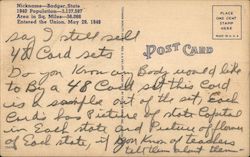 Nickname—Badger State
1940 Population—3,137,587
Area in Sq. Miles—56,066
Entered the Union, May 29, 1848
PLACE
ONE CENT
STAMP
HERE
POST CARD
say I still sell
48 Card sets
Do you Know any Body would like
to By a 48 Card set this Card
is a sample out of the set, each
Card has Picture of state Capital
in Each state and Picture of flower
of Each state, if you Know of teachers
tell them about them